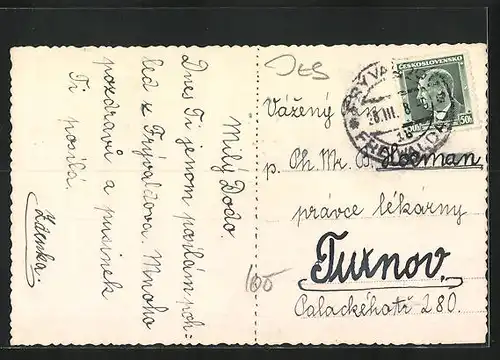 Milý Dodo.
Dnes Ti jenom posílám poh-
led z Frývaldova. Mnoho
pozdravů a pusinek
Ti posílá
Zdenka.
DES
ČESKOSLOVENSKO
50h
FRÝVALDOV
FREIWALDAU
Vážený
p. Ph. Mr. B. Hocman
právce lékarny
Turnov.
Palackého tř 280.
100